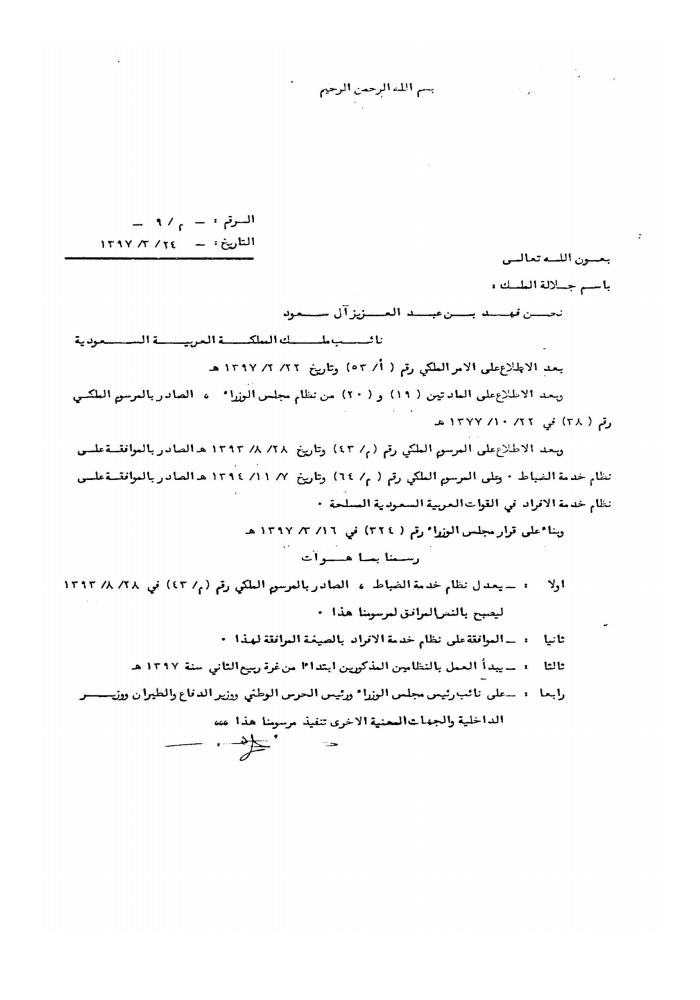 بسم الله الرحمن الرحيم
الرقم : ـ م / ٩ ـ
التاريخ : ـ ٢٤ / ٣/ ١٣٩٧
بعون الله تعالى
باسم جلالة الملك :
نحن فهد بن عبد العزيز آل سعود
نائب ملك المملكة العربية السعودية
بعد الاطلاع على الامر الملكي رقم ( أ/ ٥٣) وتاريخ ٢٢ /٢ /١٣٩٧ هـ
وبعد الاطلاع على المادتين ( ١٩) و ( ٢٠) من نظام مجلس الوزراء ، الصادر بالمرسوم الملكي
رقم ( ٣٨) في ٢٢ /١٠ /١٣٧٧ هـ
وبعد الاطلاع على المرسوم الملكي رقم (م/ ٤٣) وتاريخ ٢٨ /٨ /١٣٩٣ هـ الصادر بالموافقة على
نظام خدمة الضباط ٠ وعلى المرسوم الملكي رقم ( م/ ٦٤) وتاريخ ٧ /١١ /١٣٩٤ هـ الصادر بالموافقة على
نظام خدمة الافراد في القوات العربية السعودية المسلحة ٠
وبناء على قرار مجلس الوزراء رقم ( ٣٢٤) في ١٦ /٣ /١٣٩٧ هـ
رسمنا بما هو آت
اولا : ـ يعدل نظام خدمة الضباط ، الصادر بالمرسوم الملكي رقم (م/ ٤٣) في ٢٨ /٨ /١٣٩٣
ليصبح بالنص المرافق لمرسومنا هذا ٠
ثانيا : ـ الموافقة على نظام خدمة الافراد بالصيغة المرافقة لهذا ٠
ثالثا : ـ يبدأ العمل بالنظامين المذكورين ابتداءا من غرة ربيع الثاني سنة ١٣٩٧ هـ
رابعا : ـ على نائب رئيس مجلس الوزراء ورئيس الحرس الوطني ووزير الدفاع والطيران ووزير
الداخلية والجهات المعنية الاخرى تنفيذ مرسومنا هذا ،،،